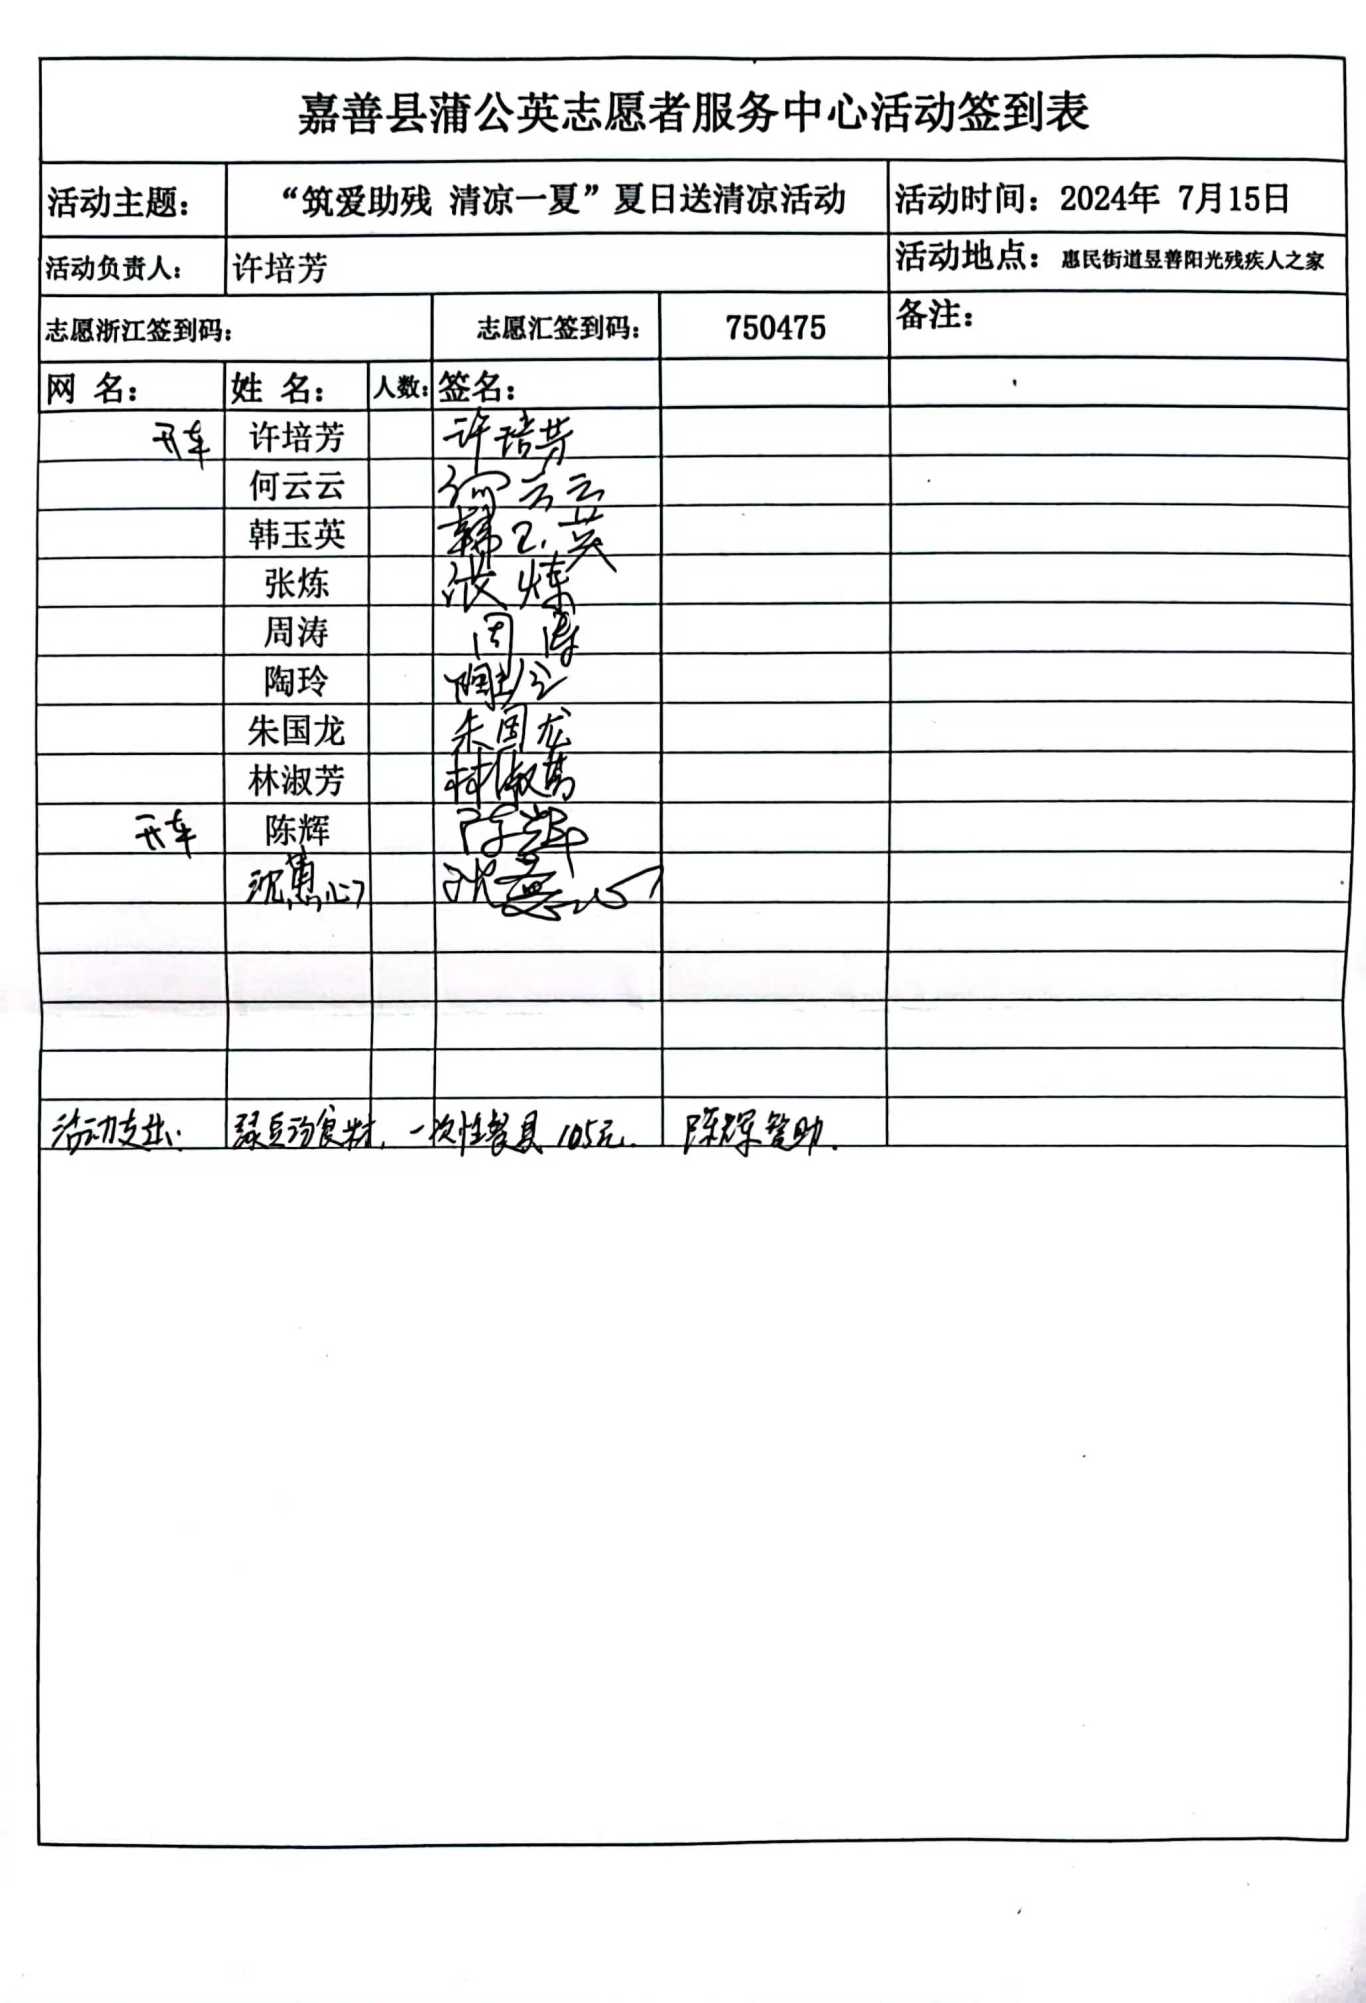 嘉善县蒲公英志愿者服务中心活动签到表
活动主题： “筑爱助残 清凉一夏”夏日送清凉活动 活动时间：2024年 7月15日
活动负责人： 许培芳 活动地点：惠民街道昱善阳光残疾人之家
志愿浙江签到码： 志愿汇签到码： 750475 备注：
网 名： 姓 名： 人数： 签名：
开车 许培芳 许培芳
何云云 何云云
韩玉英 韩玉英
张炼 张炼
周涛 周涛
陶玲 陶玲
朱国龙 朱国龙
林淑芳 林淑芳
开车 陈辉 陈辉
沈蕙心 沈蕙心
活动支出： 绿豆汤食材，一次性餐具 105元. 陈辉赞助.